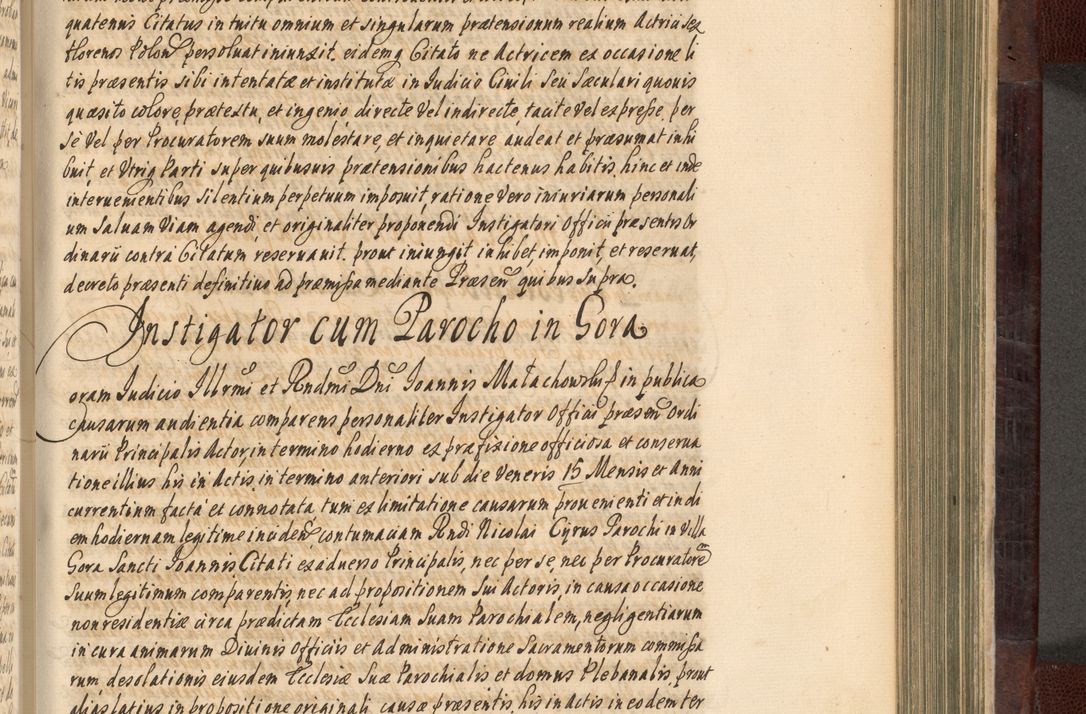 quatenus Citatus in tuitu omnium et singularum prætensionum realium Actrici sex
florenos Polon persoluat iniunxit. eidemq Citato ne Actricem ex occasione li
tis præsentis sibi intentatæ et institutæ in Iudicio Ciuili Seu Sæculari quouis
quæsito colore, prætextu, et ingenio directe vel indirecte, tacite vel expreße, per
sè vel per Procuratorem suum molestare, et inquietare audeat et præsumat inhi
buit, et Vtriq Parti super quibusuis prætensionibus hactenus habitis, hinc et inde
interuenientibus silentium perpetuum imposuit, ratione Vero iniuriarum personali
um Saluam Viam agendi, et originaliter proponendi Instigatori Officii præsentis Or
dinarii contra Citatum reseruauit. prout iniungit, inhibet, imponit, et reseruat,
decreto præsenti definitiuo ad præmißa mediante Præsen quibus Supra.
Instigator cum Parocho in Gora
Coram Iudicio Illrmi et Rndmi Dni Ioannis Małachowski in publica
causarum audientia comparens personaliter Instigator Officii præsen Ordi
narii Principalis Actor, in termino hodierno ex præfixione officiosa et conserua
tione illius his in Actis in termino anteriori sub die Veneris 15 Mensis et Anni
currentium facta et connotata, tum ex limitatione causarum prouenienti et in di
em hodiernam legitime inciden, contumaciam Rndi Nicolai Cyrus Parochi in Villa
Gora Sancti Ioannis Citati ex aduerso Principalis, nec per se, nec per Procuratore
Suum legitimum comparentis, nec ad propositionem Sui Actoris, in causa occasione
non residentiæ circa prædictam Ecclesiam Suam Parochialem, negligentiarum
in cura animarum Diuinis Officiis et Administratione Sacramentorum commißa
rum desolationis eiusdem Ecclesiæ Suæ Parochialis et domus Plebanalis, prout
alias latius in propositione originali causæ præsentis, his in Actis in eodem ter